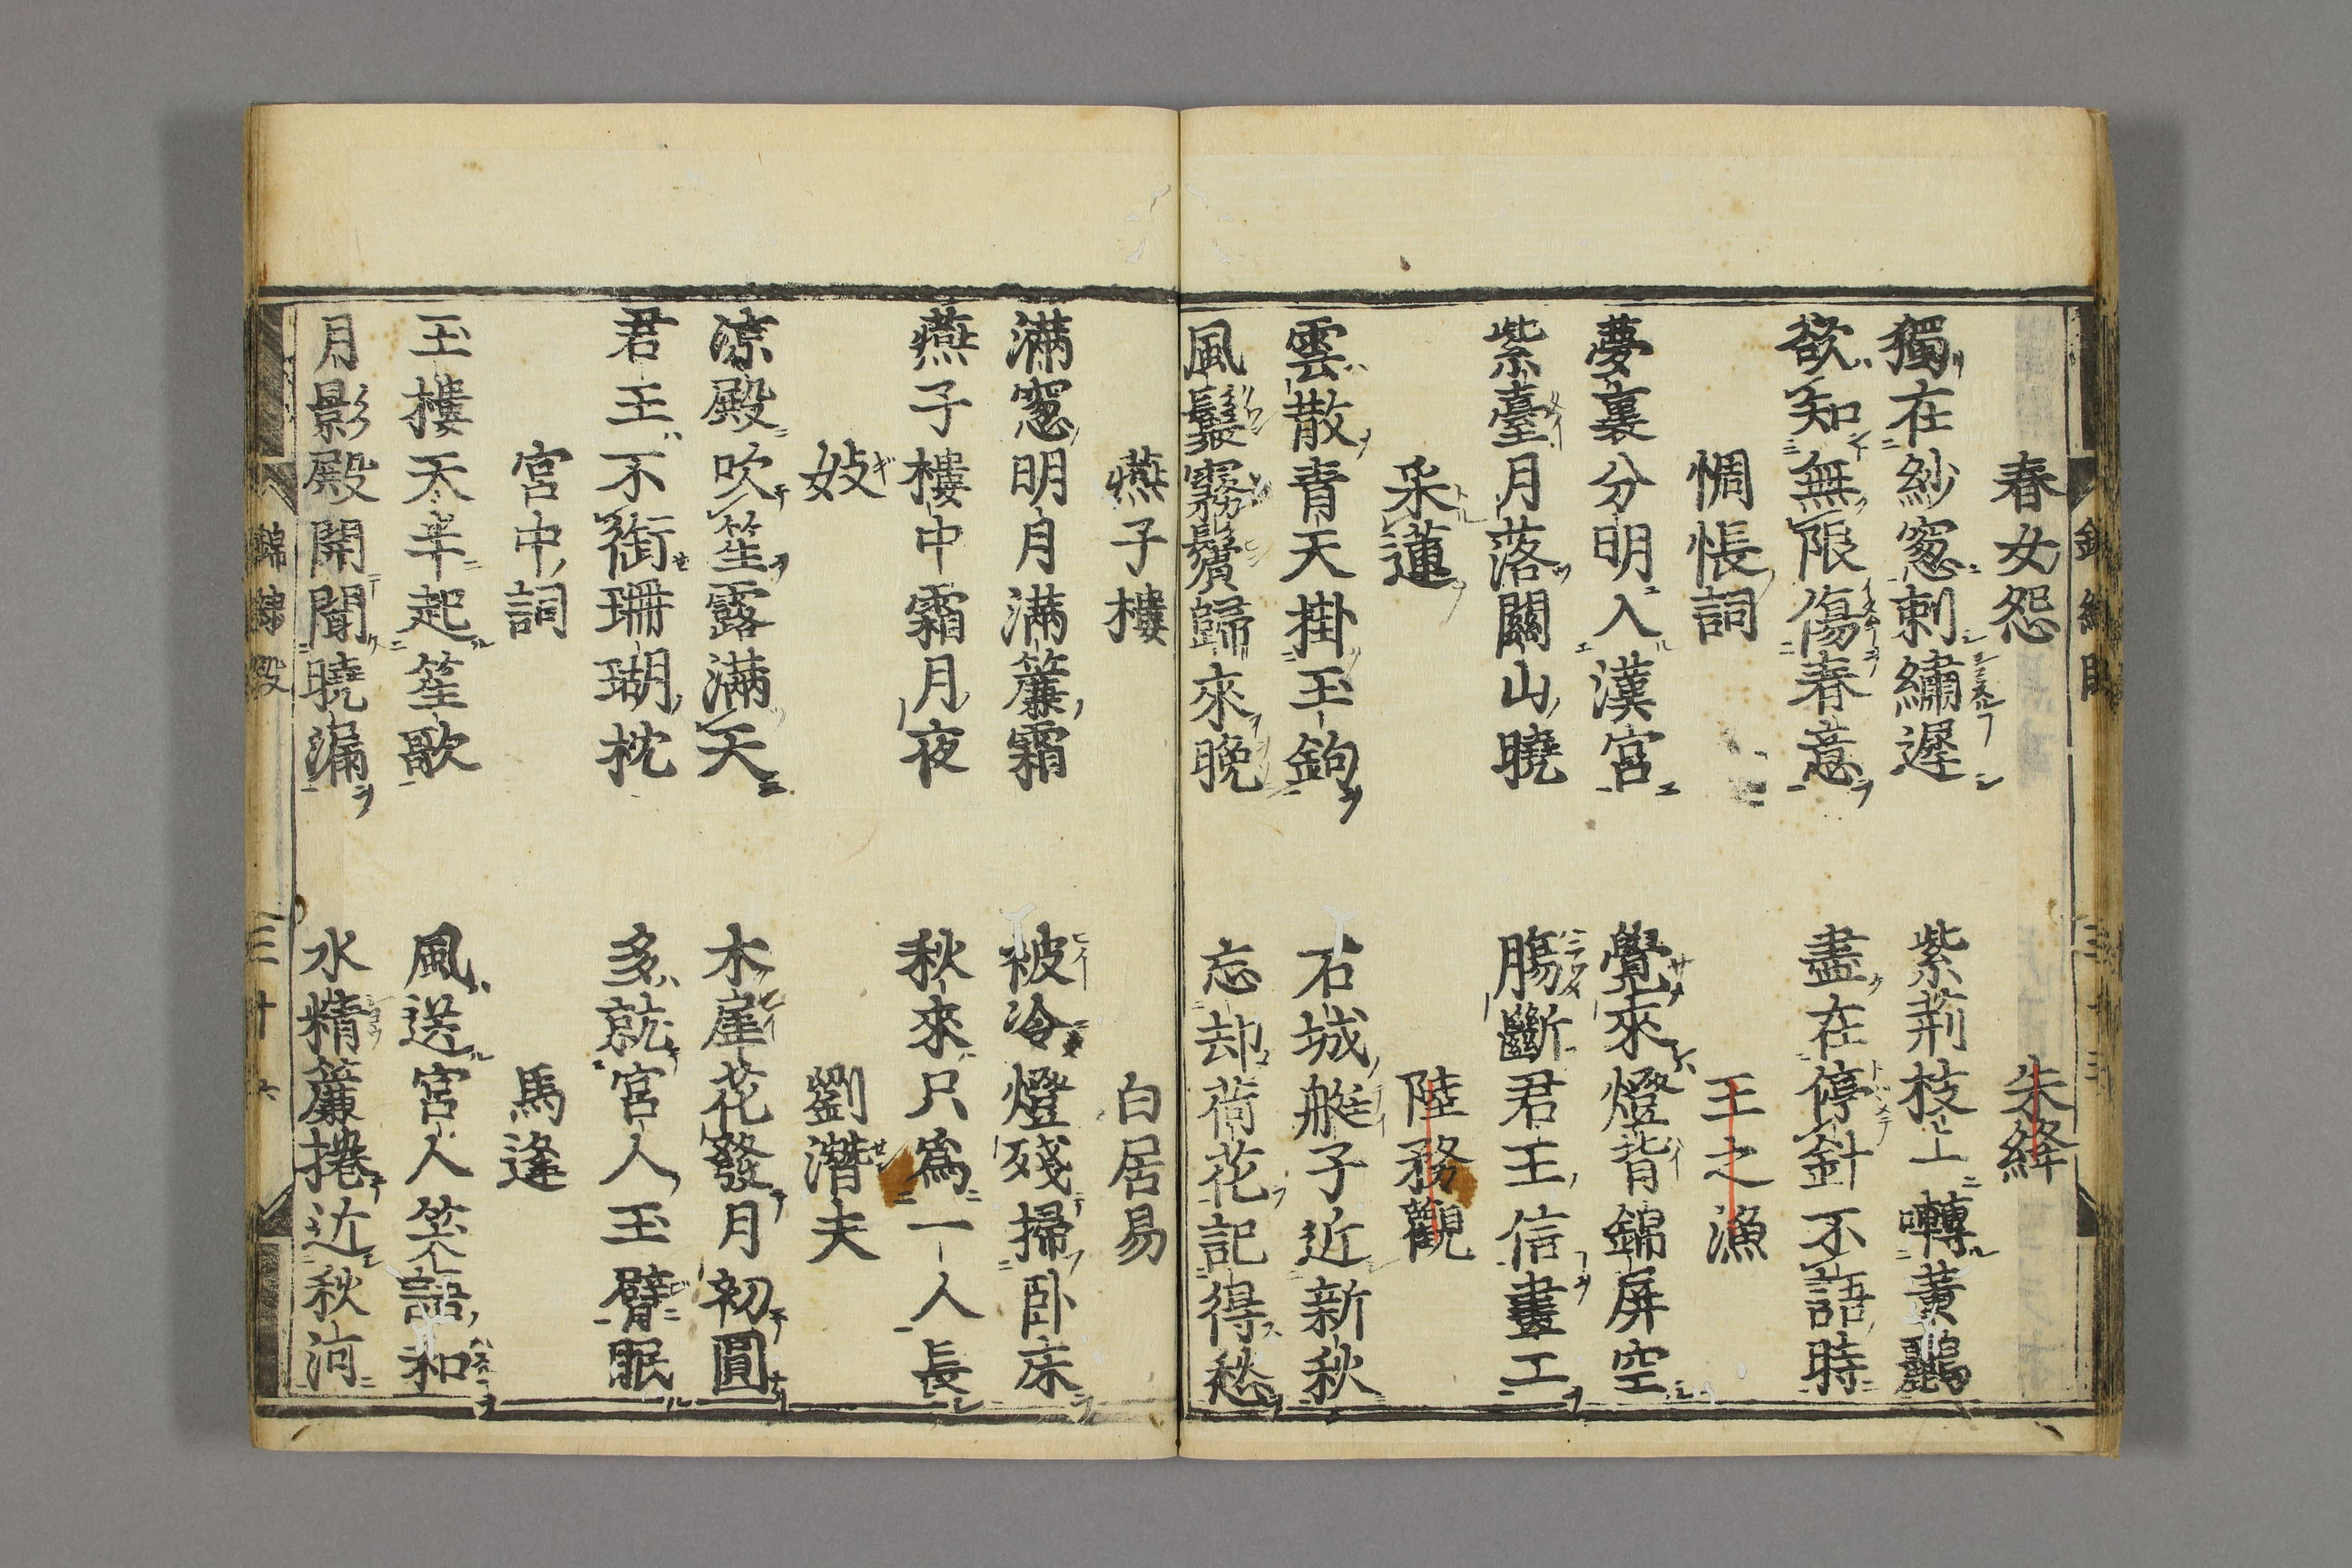 春女怨　朱絳
獨在紗窓刺繡遲　紫荊枝上囀黃鸝
欲知無限傷春意　盡在停針不語時
惆悵詞　王之渙
夢裏分明入漢宮　覺來燈背錦屏空
紫臺月落關山曉　腸斷君王信畫工
采蓮　陸務觀
雲散青天掛玉鉤　石城艇子近新秋
風鬟霧鬢歸來晚　忘却荷花記得愁
燕子樓　白居易
滿窓明月滿簾霜　被冷燈殘掃臥床
燕子樓中霜月夜　秋來只爲一人長
妓　劉潛夫
凉殿吹笙露滿天　木犀花發月初圓
君王不銜珊瑚枕　多就宮人玉臂眠
宮中詞　馬逢
玉樓天半起笙歌　風送宮人笑語和
月影殿開聞曉漏　水精簾捲近秋河
錦繡段　三十六